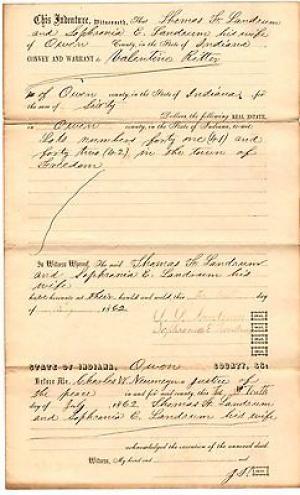 This Indenture, Witnesseth, That Thomas H. Landrum
and Sophronia E. Landrum his wife
of Owen County, in the State of Indiana
CONVEY AND WARRANT to Valentine Ritter
of Owen county, in the State of Indiana for
the sum of Sixty
Dollars, the following REAL ESTATE,
in Owen county, in the State of Indiana, to-wit:
Lots numbers forty one (41) and
forty two (42) in the town of
Freedom
In Witness Whereof, The said Thomas H. Landrum
and Sophronia E. Landrum his
wife
have hereunto set their hand and seal this day
of 1862
Sophronia E.
STATE OF INDIANA, Owen COUNTY, SS:
Before Me, Charles W. a justice of
the peace in and for said county, this
day of July 1862 Thomas H. Landrum
and Sophronia E. Landrum his wife
acknowledged the execution of the annexed deed.
Witness, My hand and